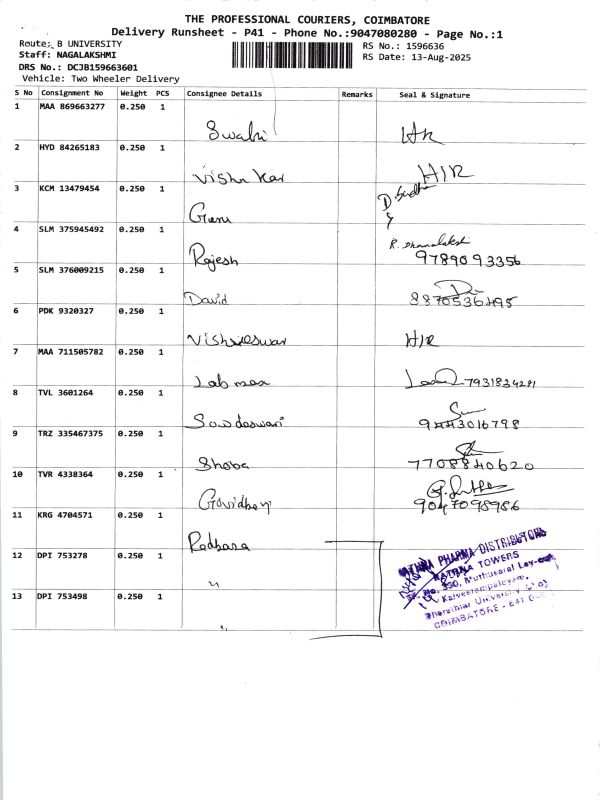 THE PROFESSIONAL COURIERS, COIMBATORE
Delivery Runsheet - P41 - Phone No.:9047080280 - Page No.:1
Route: B UNIVERSITY RS No.: 1596636
Staff: NAGALAKSHMI RS Date: 13-Aug-2025
DRS No.: DCJB159663601
Vehicle: Two Wheeler Delivery
S No Consignment No Weight PCS Consignee Details Remarks Seal & Signature
1 MAA 869663277 0.250 1
2 HYD 84265183 0.250 1 H/R
3 KCM 13479454 0.250 1 Guru
4 SLM 375945492 0.250 1 Rajesh 9789093356
5 SLM 376009215 0.250 1 David 8870536495
6 PDK 9320327 0.250 1 Vishweswar H/R
7 MAA 711505782 0.250 1
8 TVL 3601264 0.250 1 Sowdeswari 9443016798
9 TRZ 335467375 0.250 1 Shoba 7708840620
10 TVR 4338364 0.250 1 9047098986
11 KRG 4704571 0.250 1
12 DPI 753278 0.250 1 "
13 DPI 753498 0.250 1 "
PHARMA DISTRIBUTORS
TOWERS
Kalveerampalayam,
Bharathiar University
COIMBATORE - 641